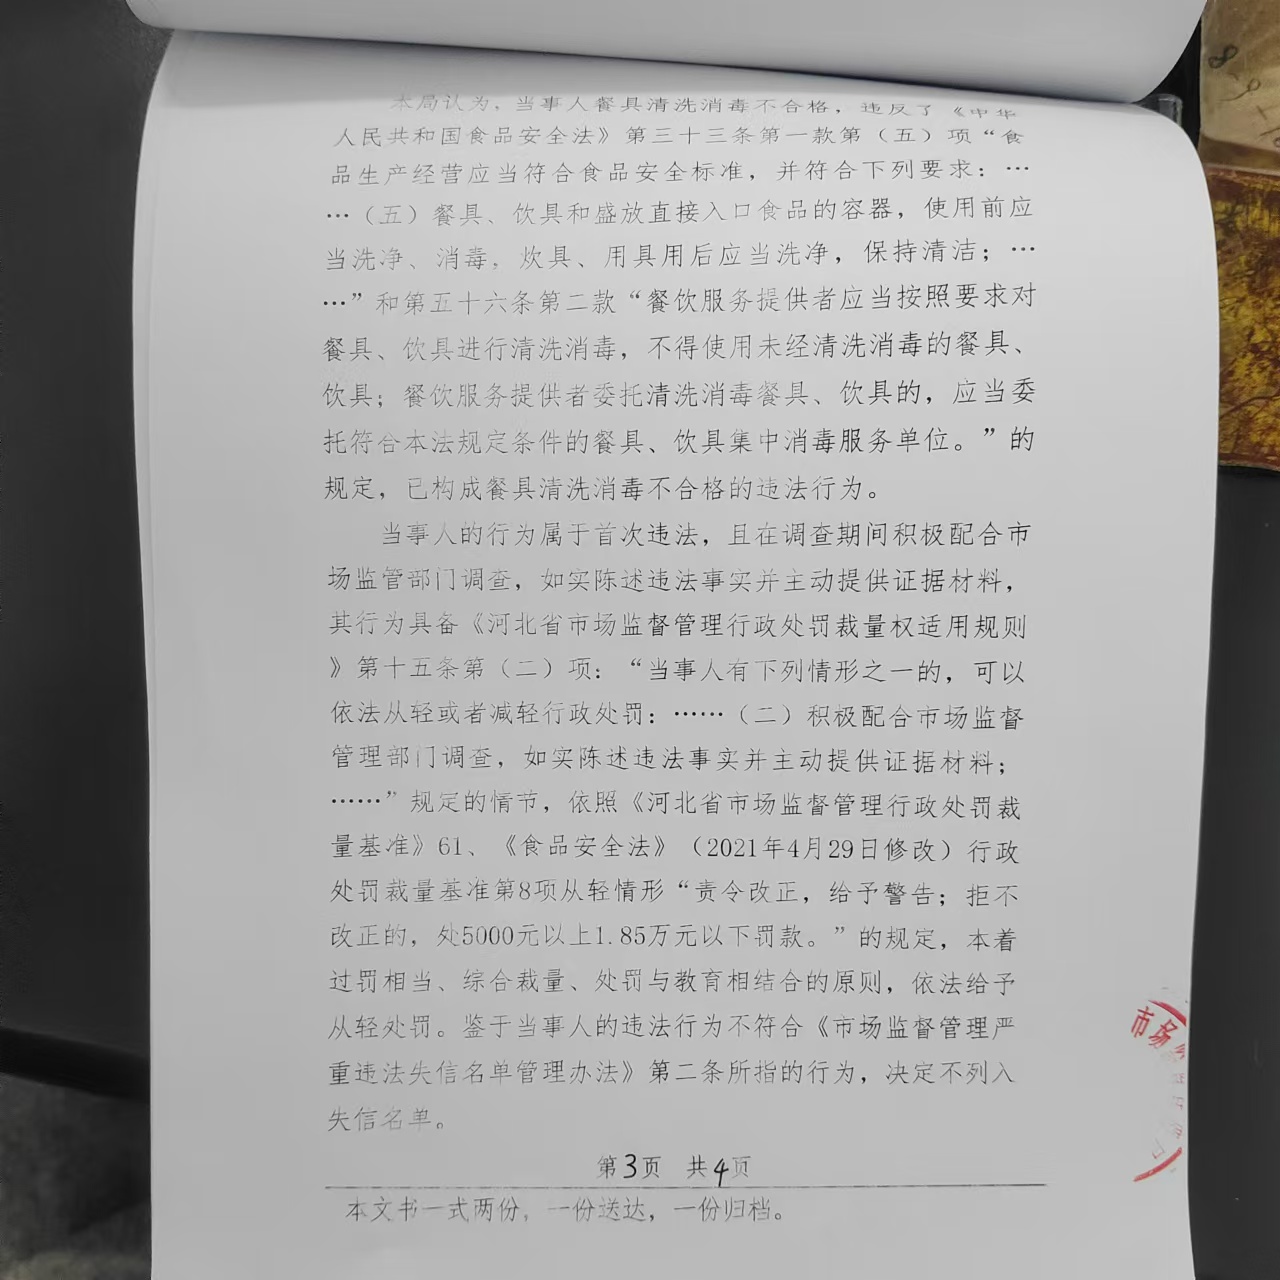 本局认为，当事人餐具清洗消毒不合格，违反了《中华
人民共和国食品安全法》第三十三条第一款第（五）项“食
品生产经营应当符合食品安全标准，并符合下列要求：…
…（五）餐具、饮具和盛放直接入口食品的容器，使用前应
当洗净、消毒，炊具、用具用后应当洗净，保持清洁；…
…”和第五十六条第二款“餐饮服务提供者应当按照要求对
餐具、饮具进行清洗消毒，不得使用未经清洗消毒的餐具、
饮具；餐饮服务提供者委托清洗消毒餐具、饮具的，应当委
托符合本法规定条件的餐具、饮具集中消毒服务单位。”的
规定，已构成餐具清洗消毒不合格的违法行为。
当事人的行为属于首次违法，且在调查期间积极配合市
场监管部门调查，如实陈述违法事实并主动提供证据材料，
其行为具备《河北省市场监督管理行政处罚裁量权适用规则
》第十五条第（二）项：“当事人有下列情形之一的，可以
依法从轻或者减轻行政处罚：……（二）积极配合市场监督
管理部门调查，如实陈述违法事实并主动提供证据材料；
……”规定的情节，依照《河北省市场监督管理行政处罚裁
量基准》61、《食品安全法》（2021年4月29日修改）行政
处罚裁量基准第8项从轻情形“责令改正，给予警告；拒不
改正的，处5000元以上1.85万元以下罚款。”的规定，本着
过罚相当、综合裁量、处罚与教育相结合的原则，依法给予
从轻处罚。鉴于当事人的违法行为不符合《市场监督管理严
重违法失信名单管理办法》第二条所指的行为，决定不列入
失信名单。
市场
第3页 共4页
本文书一式两份，一份送达，一份归档。